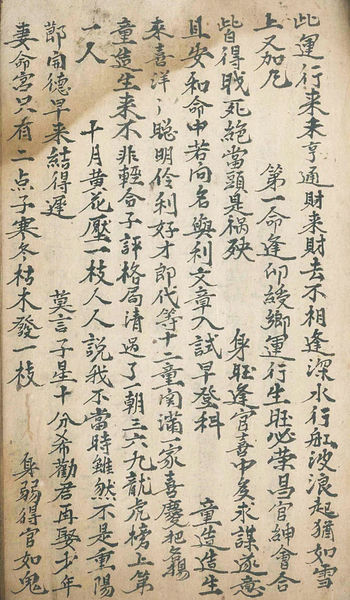 此運行來未亨通財來財去不相逢深水行舡波浪起猶如雪
上又加 第一命逢印綬鄉運行生旺必榮昌官紳會合
皆得 死絕當頭是禍殃 身旺逢官喜中 求謀遂意
且安和命中若向名與利文章入試早登科 童造造生
來喜洋〻聰明伶利好才郎代等十二童関滿一家喜慶把 
童造生來不非輕合子評格局清過了一朝三六九龍虎榜上第
一人 十月黃花壓一枝人人說我不當時雖然不是重陽
節開德早來結得遲 莫言子星十分希勸君再娶少年
妻命宮只有二点子寒冬枯木發一枝 身弱得官如鬼